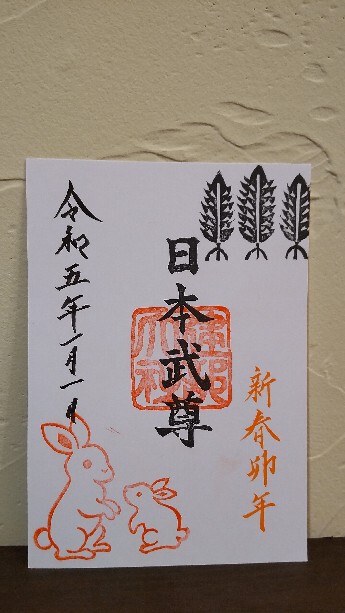 新春卯年
日本武尊
建部大社
令和五年一月一日